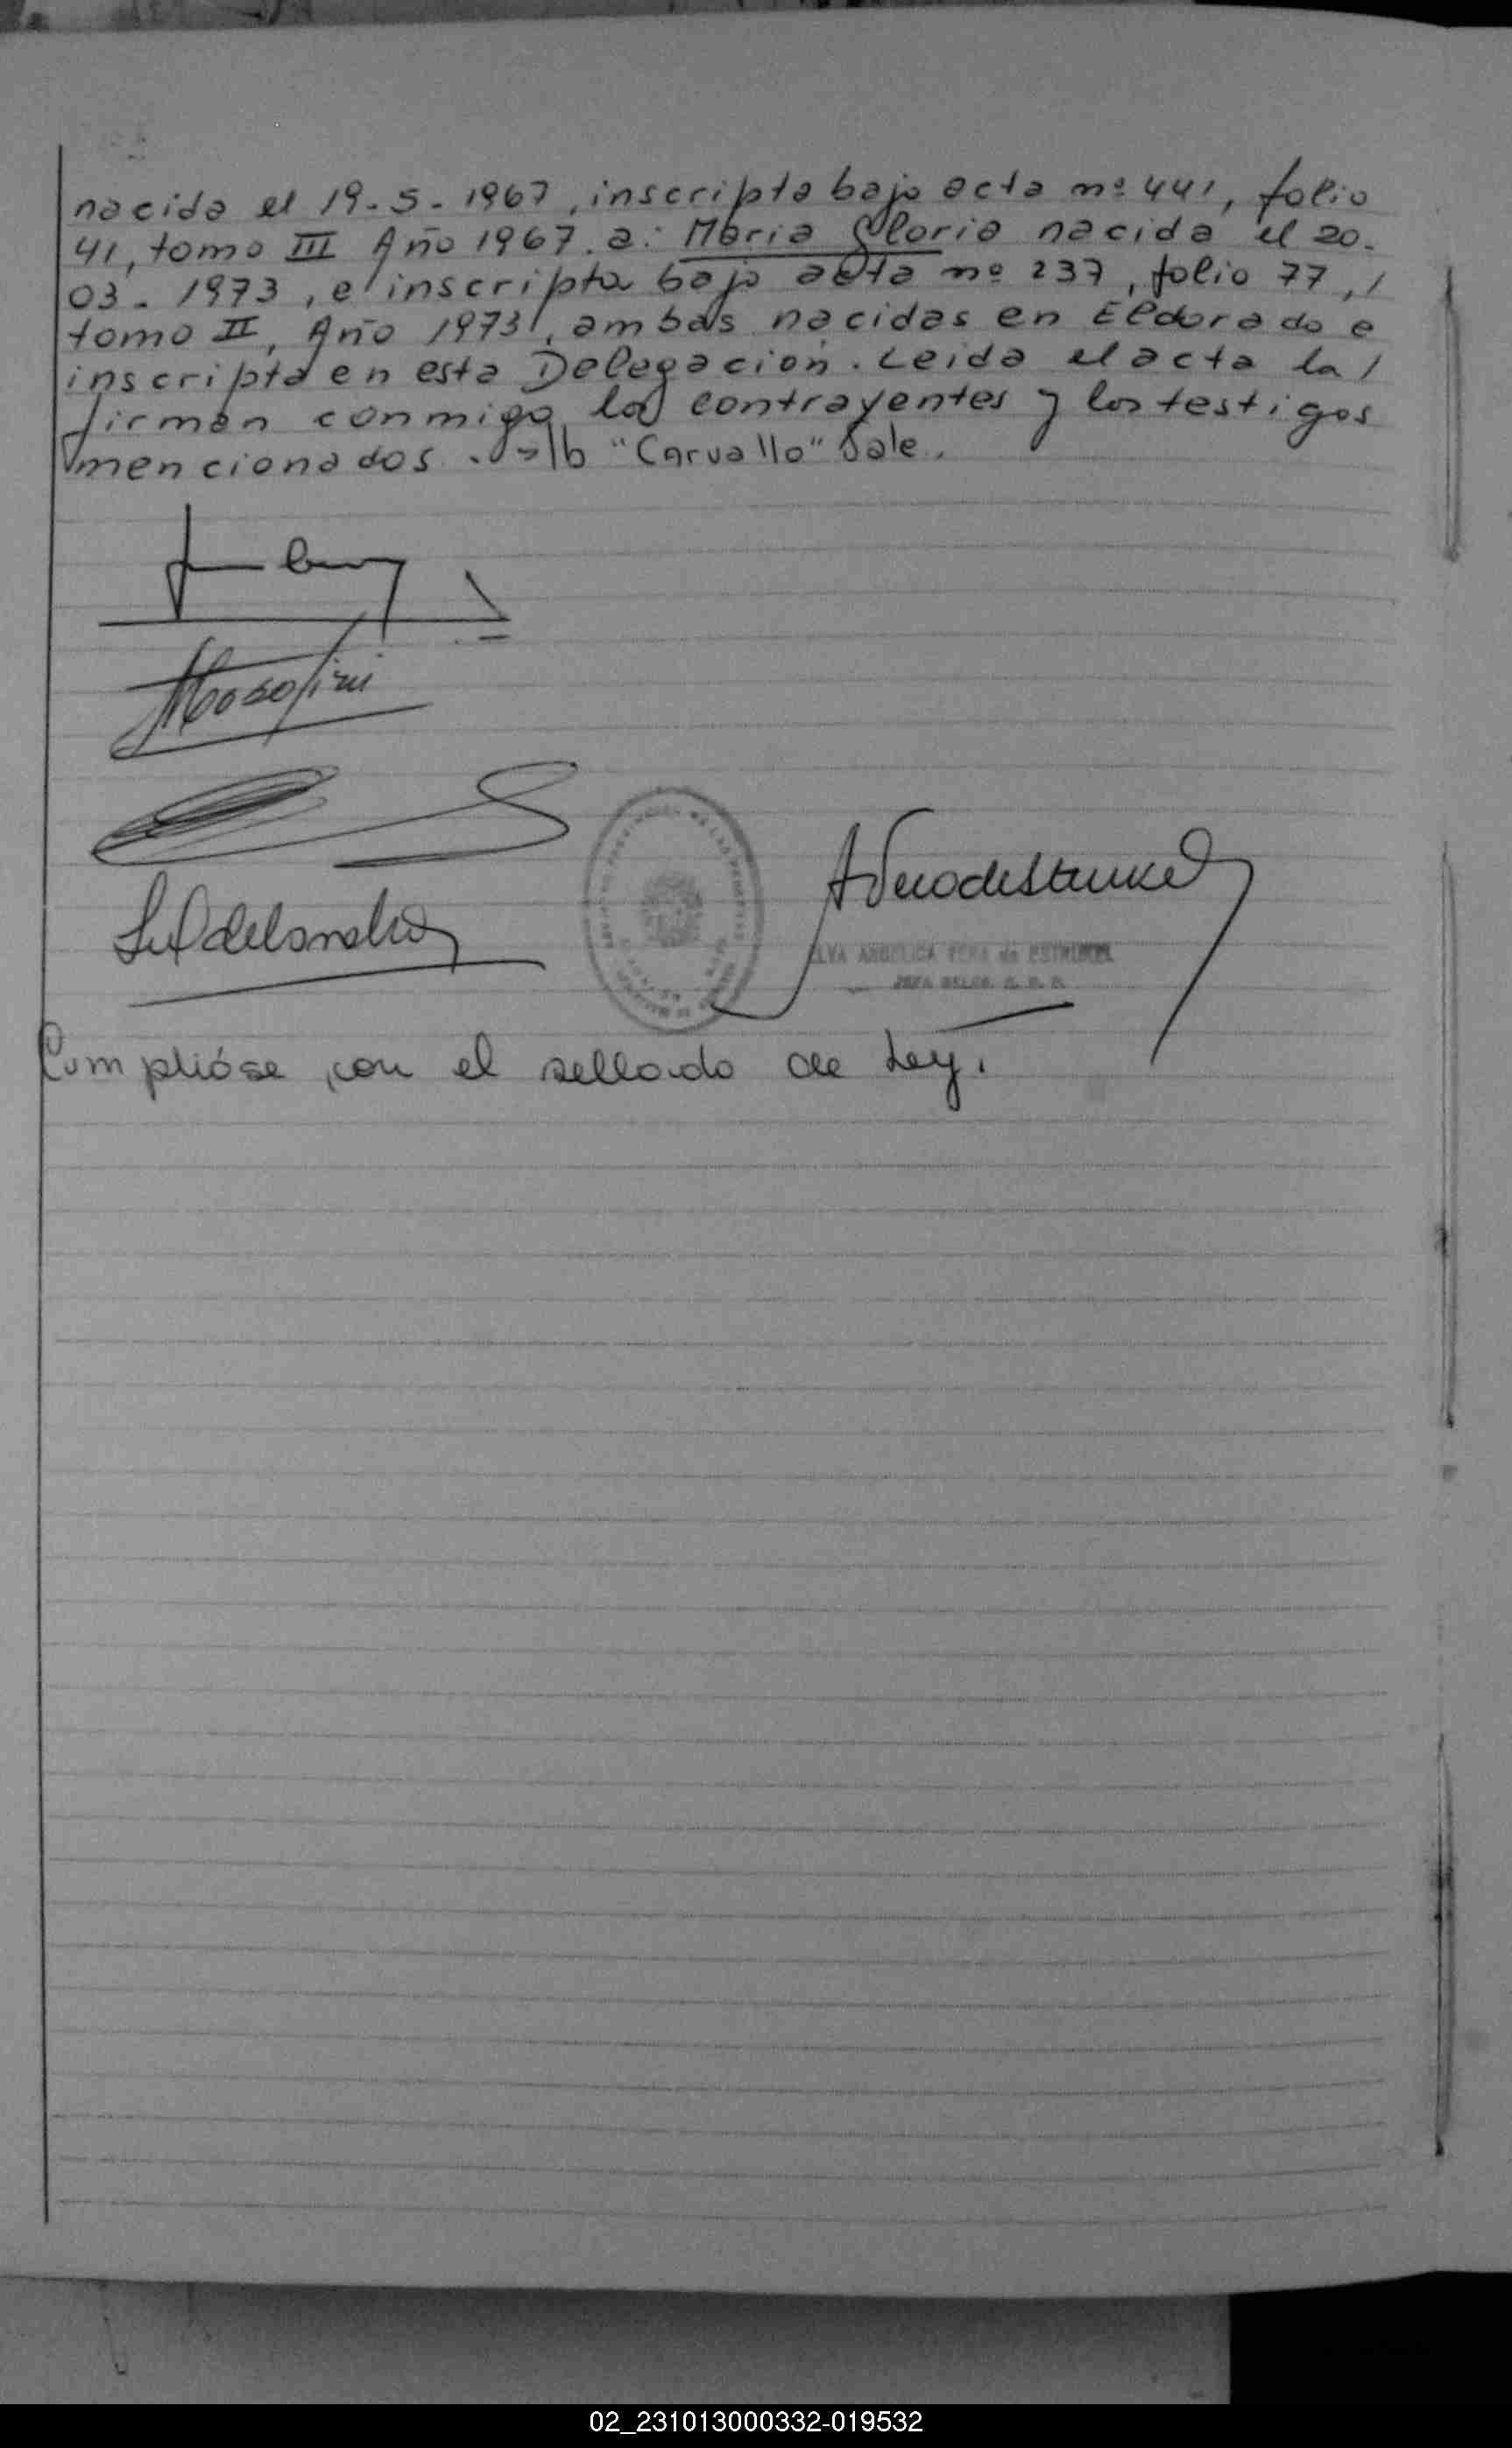 nacida el 19-5-1967, inscripta bajo acta nº 441, folio
41, tomo III Año 1967. a: Maria Gloria nacida el 20-
03-1973, e inscripta bajo acta nº 237, folio 77, /
tomo II, Año 1973, ambas nacidas en Eldorado e
inscripta en esta Delegación. Leida el acta la /
firman conmigo los contrayentes y los testigos
mencionados. - "Carvallo" Vale.
ELVA ANGELICA de
JEFA DELEG.
Cumplióse con el sellado de Ley.
02_231013000332-019532